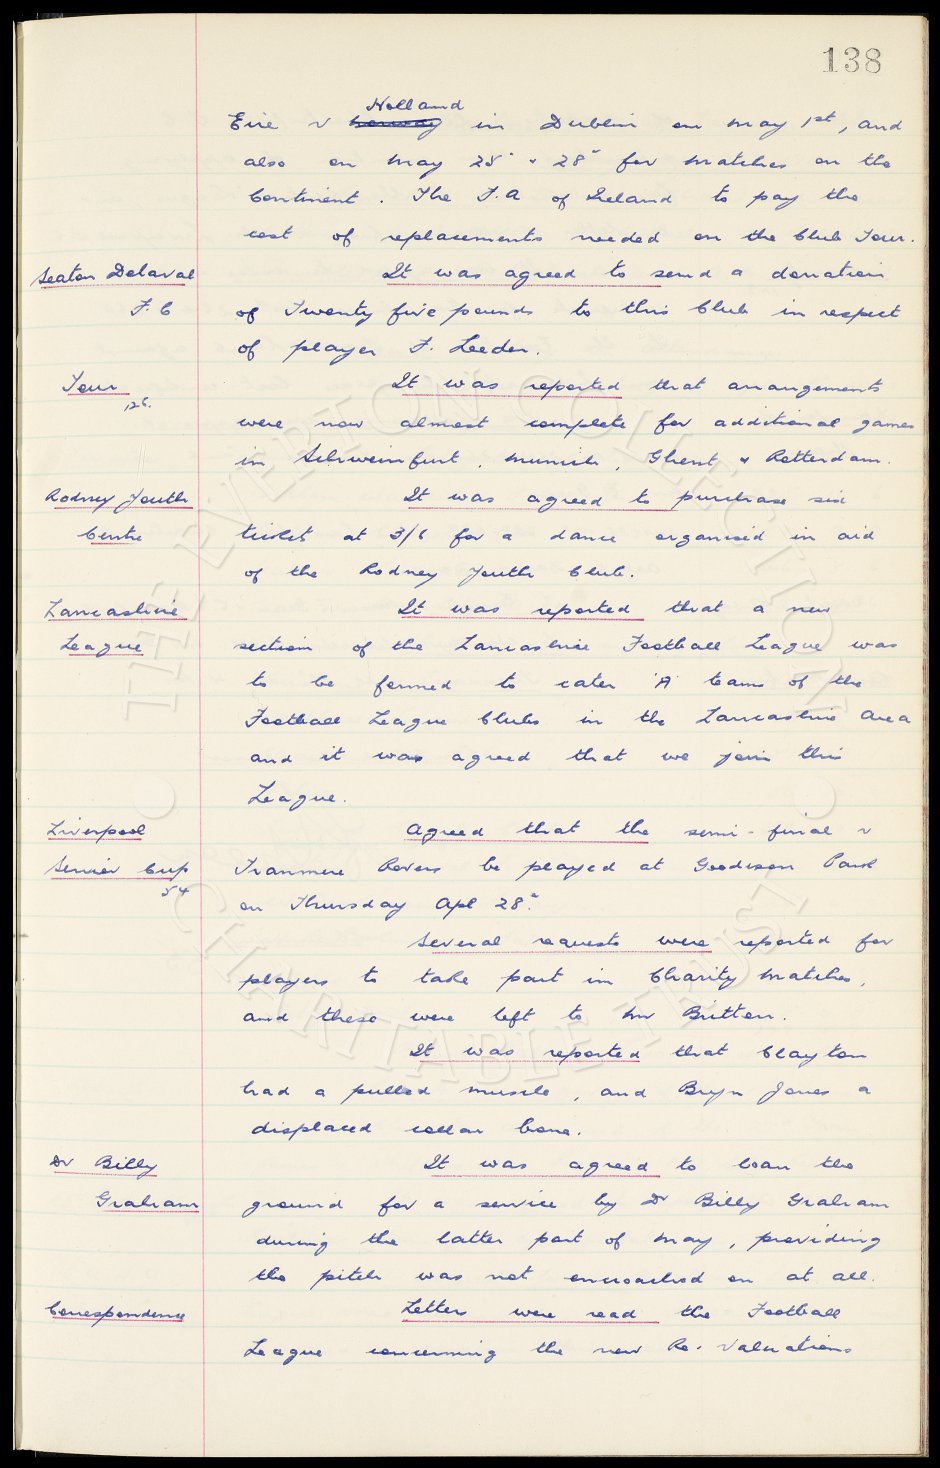 138
Holland
Eire v Norway in Dublin on May 1st, and
also on May 25" & 28" for matches on the
Continent. The F.A of Ireland to pay the
cost of replacements needed on the Club Tour.
Seaton Delaval It was agreed to send a donation
F.C of Twenty five pounds to this Club in respect
of player F. Leeder.
Tour It was reported that arrangements
126. were now almost complete for additional games
in Schweinfurt, Munich, Ghent & Rotterdam.
Rodney Youth It was agreed to purchase six
Centre ticket at 3/6 for a dance organised in aid
of the Rodney Youth Club.
Lancashire It was reported that a new
League section of the Lancashire Football League was
to be formed to cater 'A' teams of the
Football League Clubs in the Lancashire Area
and it was agreed that we join this
League.
Liverpool Agreed that the semi-final v
Senior Cup Tranmere Rovers be played at Goodison Park
54 on Thursday Apl 28".
Several requests were reported for
players to take part in Charity Matches,
and these were left to Mr Britton.
It was reported that Clayton
had a pulled muscle, and Bryn Jones a
displaced collar bone.
Dr Billy It was agreed to loan the
Graham ground for a service by Dr Billy Graham
during the latter part of May, providing
the pitch was not encroached on at all.
Correspondence Letters were read the Football
League concerning the new Re-Valuations
THE EVERTON COLLECTION
CHARITABLE TRUST